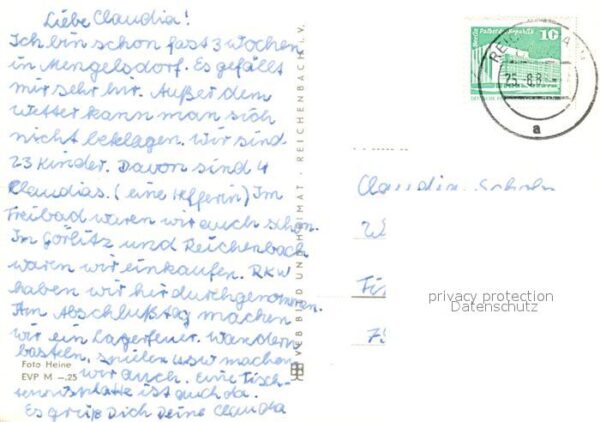 Liebe Claudia!
Ich bin schon fast 3 Wochen
in Mengelsdorf. Es gefällt
mir sehr hir. Außer dem
Wetter kann man sich
nicht beklagen. Wir sind
23 Kinder. Davon sind 4
Claudias. (eine Helferin) Im
Freibad waren wir auch schon.
In Görlitz und Reichenbach
waren wir einkaufen. RKW
haben wir hir durchgenommen.
Am Abschlußtag machen
wir ein Lagerfeuer. Wandern
basteln, spielen usw machen
wir auch. Eine Tisch-
tennisplatte ist auch da.
Es grüßt Dich Deine Claudia
Foto Heine
EVP M –.25
VEB BILD UND HEIMAT · REICHENBACH i. V.
Berlin Palast der Republik
10
25.-8.8
a
Claudia
privacy protection
Datenschutz